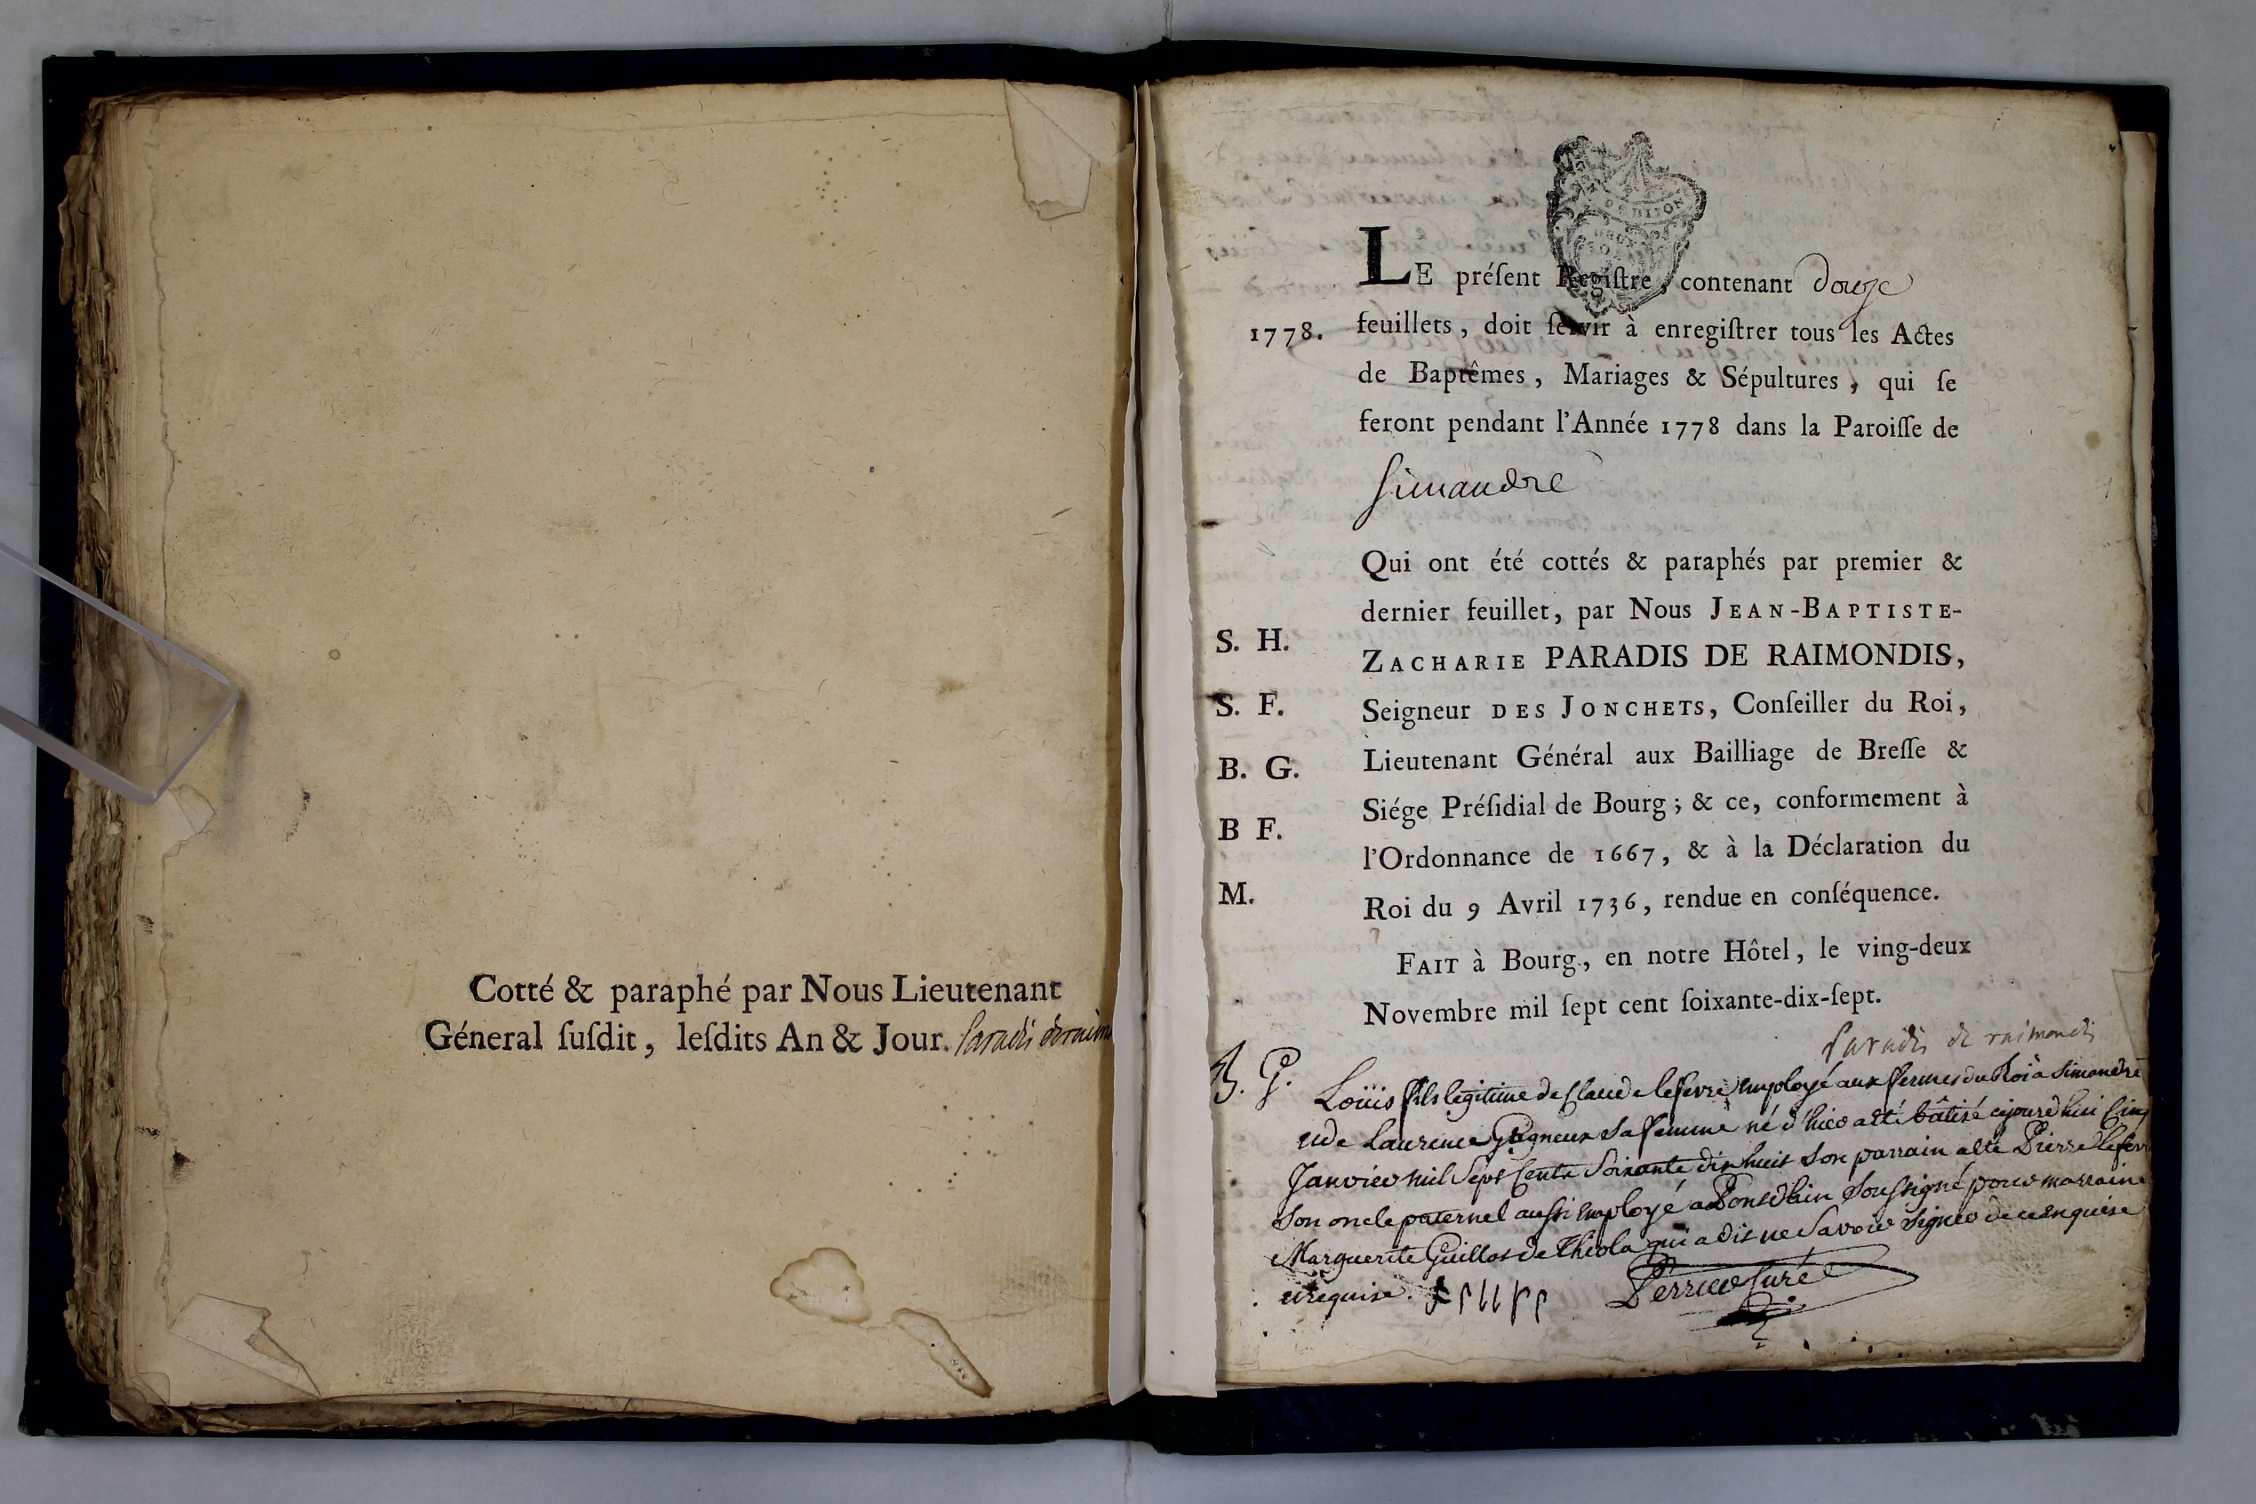 Cotté & paraphé par Nous Lieutenant
Géneral ſuſdit, leſdits An & Jour. Paradis de raimon
LE préſent Regiſtre, contenant douze
1778. feuillets, doit ſervir à enregiſtrer tous les Actes
de Baptêmes, Mariages & Sépultures, qui ſe
feront pendant l'Année 1778 dans la Paroiſſe de
Simandre
Qui ont été cottés & paraphés par premier &
dernier feuillet, par Nous JEAN-BAPTISTE-
S. H.
ZACHARIE PARADIS DE RAIMONDIS,
S. F.
Seigneur DES JONCHETS, Conſeiller du Roi,
B. G.
Lieutenant Général aux Bailliage de Breſſe &
Siége Préſidial de Bourg; & ce, conformement à
B F.
l'Ordonnance de 1667, & à la Déclaration du
M.
Roi du 9 Avril 1736, rendue en conſéquence.
FAIT à Bourg, en notre Hôtel, le ving-deux
Novembre mil ſept cent ſoixante-dix-ſept.
Paradis de raimondi
B. G. Loüis fils legitime de Claude lefevre employé aux fermes du Roi à Simandre
et de Laurence sa femme né d'hier a été bâtisé cejourd'hui Cinq
Janvier mil Sept Cents Soixante dix huit son parrain a été Pierre lefev
son oncle paternel aussi employé a Pontdhain soussigné pour marraine
Marguerite Guillot de Thiola qui a dit ne savoir signer de ce enquise
et requise.
Perrier Curé